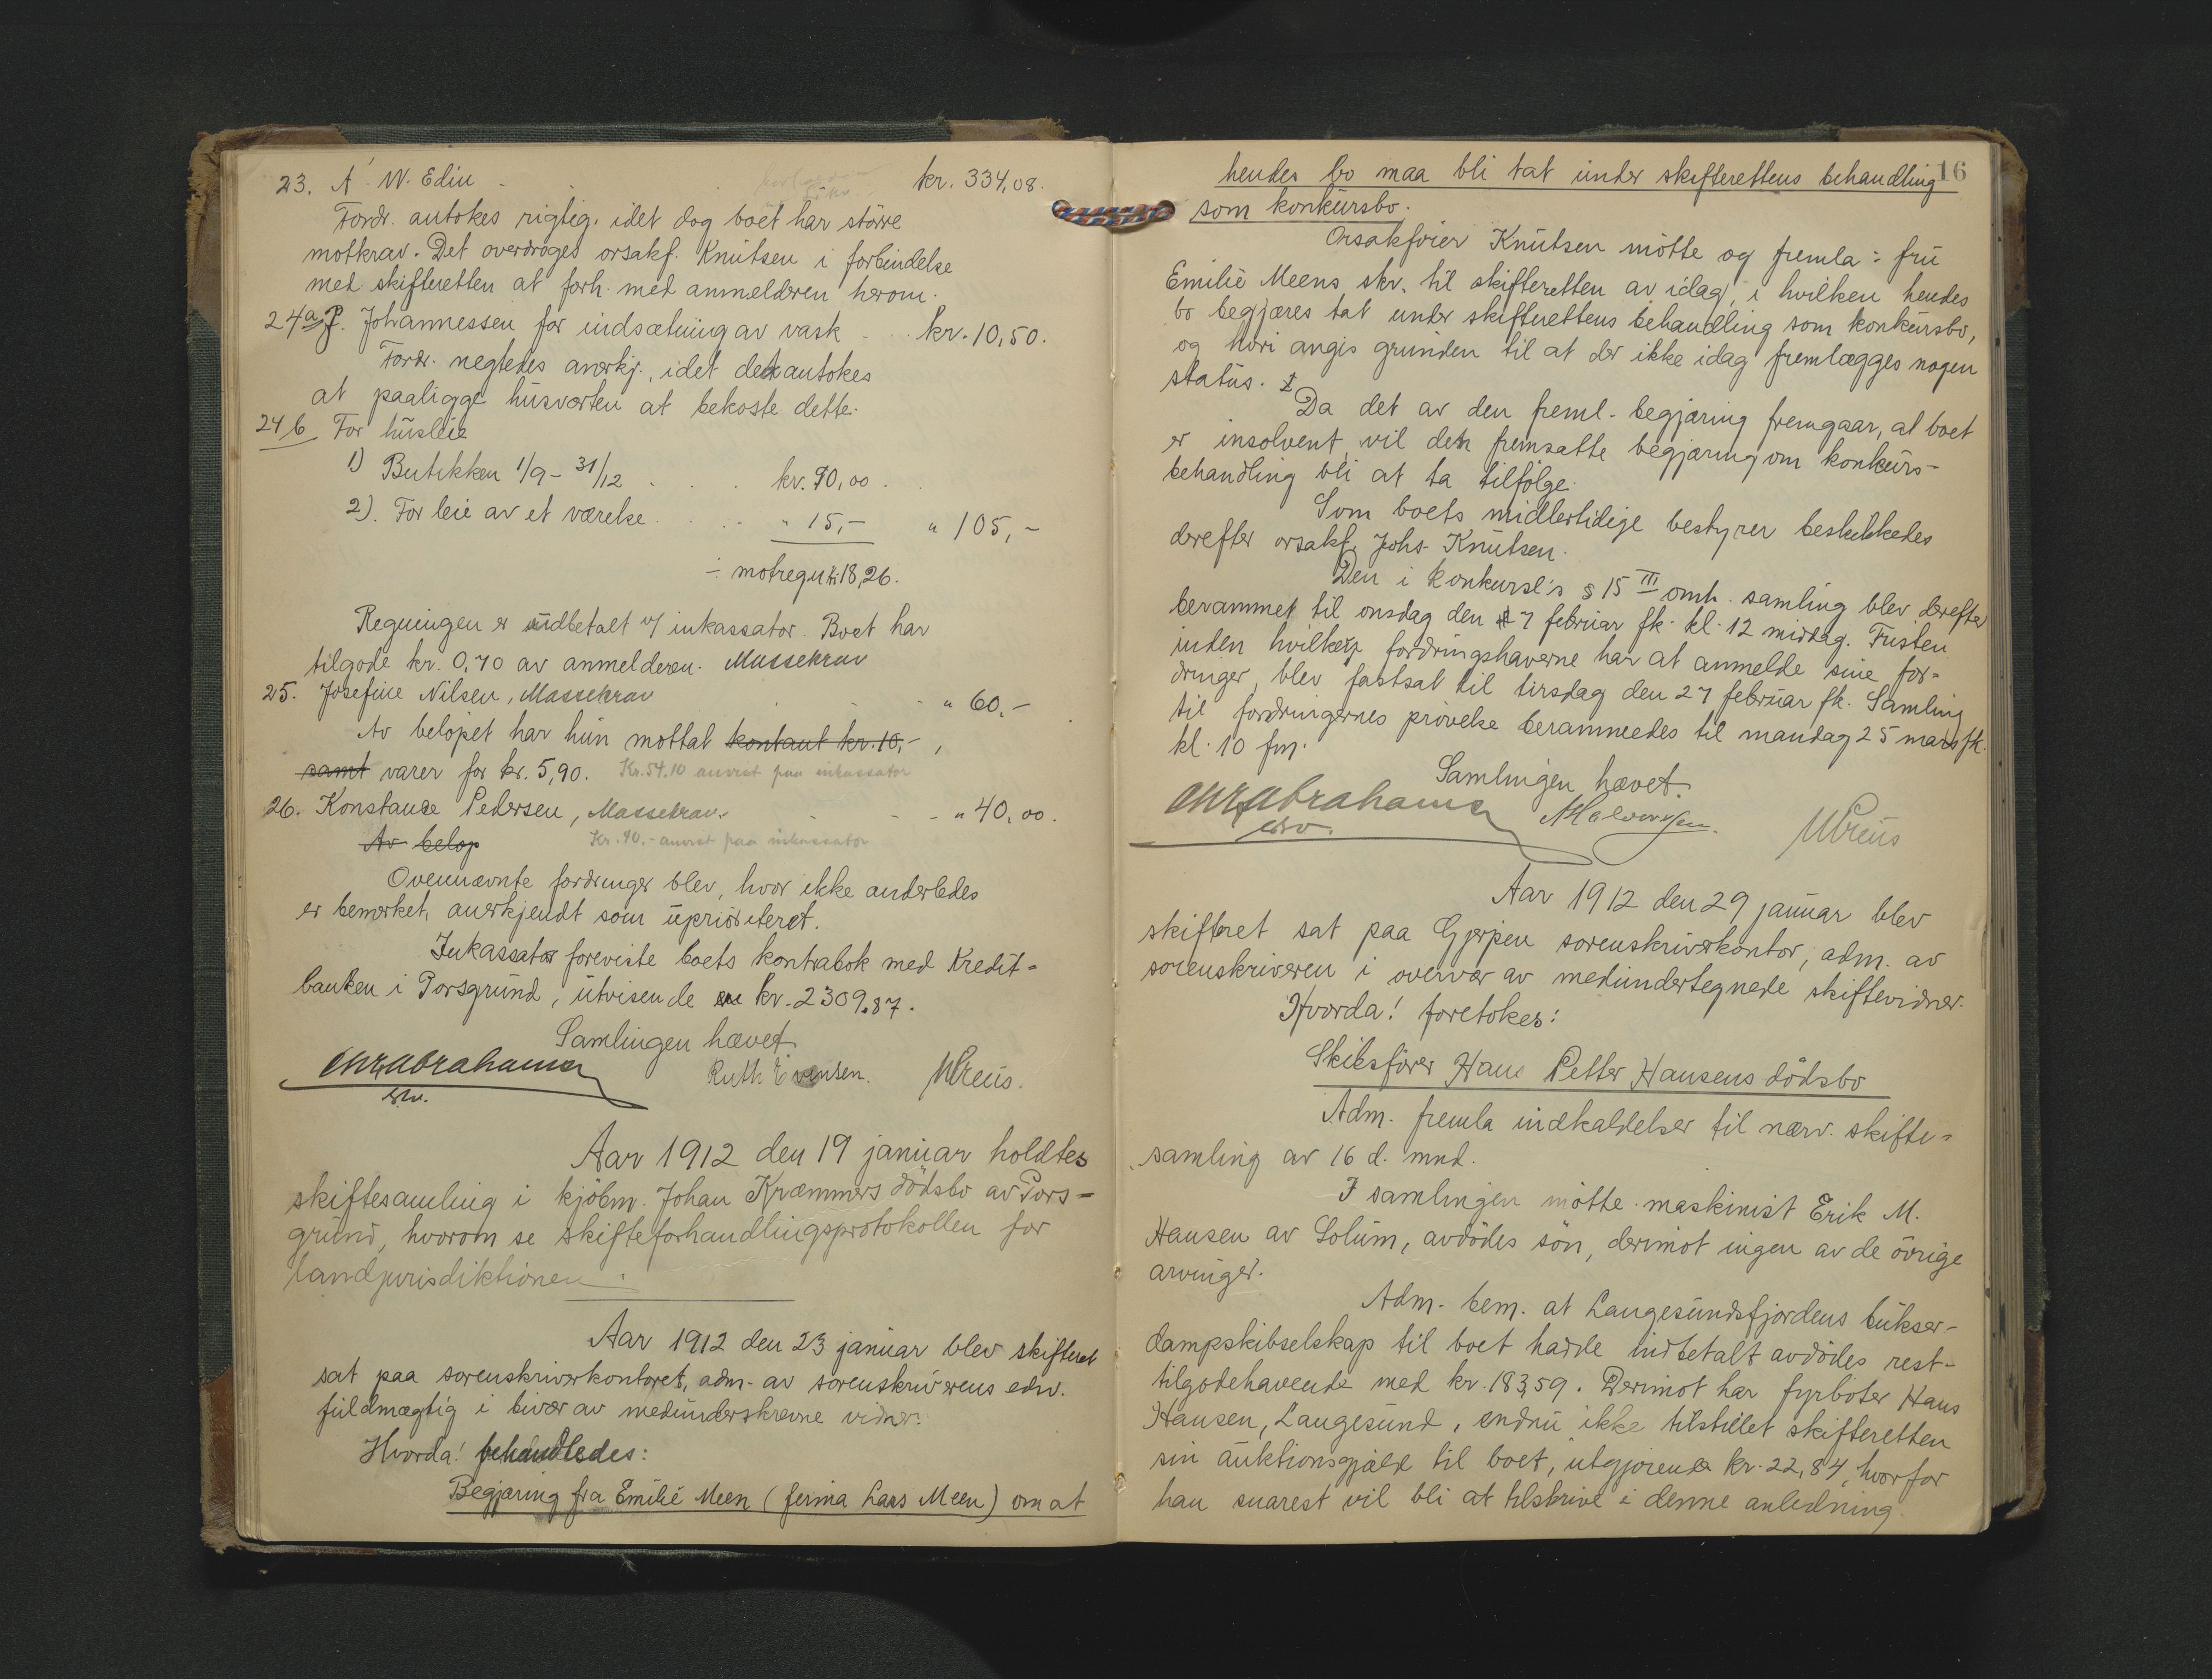 23. A. W. Edin . . . kr. 334,08.
Fordr. antokes rigtig, idet dog boet har större
motkrav. Det overdroges orsakf. Knutsen i forbindelse
med skifteretten at forh. med anmelderen herom.
24a P. Johannessen for indsætning av vask . . kr. 10,50.
Fordr. negtedes anerkj., idet det antokes
at paaligge husverten at bekoste dette.
24 b For husleie
1) Butikken 1/9 - 31/12 . . . kr. 90,00 .
2). For leie av et værelse . . . " 15,- " 105,-
÷ motregn. kr. 18,26.
Regningen er indbetalt v/ inkassator. Boet har
tilgode kr. 0,70 av anmelderen. Massekrav
25. Josefine Nilsen, Massekrav . . . " 60,-
Av belöpet har hun mottat kontant kr. 10,-,
samt varer for kr. 5,90. Kr. 54.10 anvist paa inkassator
26. Konstance Pedersen, Massekrav. - - - " 40,00.
Av belöp Kr. 40.- anvist paa inkassator
Ovennævnte fordringer blev, hvor ikke anderledes
er bemerket, anerkjendt som uprioriteret.
Inkassator foreviste boets kontrabok med Kredit-
banken i Porsgrund, utvisende kr. 2309.87.
Samlingen hævet.
Chr Abrahamsen Ruth Evensen. MPreus.
edv.
Aar 1912 den 19 januar holdtes
skiftesamling i kjöbm. Johan Kræmmers dödsbo av Pors-
grund, hvorom se skifteforhandlingsprotokollen for
landjurisdiktionen.
Aar 1912 den 23 januar blev skifteret
sat paa sorenskriverkontoret, adm. av sorenskriverens edsv.
fuldmægtig i bivær av medunderskrevne vidner.
Hvorda! behandledes:
Begjæring fra Emilie Meen (firma Lars Meen) om at
16
hendes bo maa bli tat under skifterettens behandling
som konkursbo.
Orsakförer Knutsen mötte og fremla: fru
Emilie Meens skr. til skifteretten av idag, i hvilken hendes
bo begjæres tat under skifterettens behandling som konkursbo,
og hvori angis grunden til at der ikke idag fremlægges nogen
status.
Da det av den freml. begjæring fremgaar, at boet
er insolvent, vil den fremsatte begjæring om konkurs-
behandling bli at ta tilfölge.
Som boets midlertidige bestyrer beskikkedes
derefter orsakf. Johs. Knutsen.
Den i konkursl's § 15 III omh. samling blev derefter
berammet til onsdag den 7 februar fk. kl. 12 middag. Fristen
inden hvilken fordringshaverne har at anmelde sine for-
dringer, blev fastsat til tirsdag den 27 februar fk. Samling
til fordringernes prövelse berammedes til mandag 25 mars fk.
kl. 10 fm.
Samlingen hævet.
Chr Abrahamsen AHalvorsen. MPreus
edsv.
Aar 1912 den 29 januar blev
skifteret sat paa Gjerpen sorenskriverkontor, adm. av
sorenskriveren i overvær av medundertegnede skiftevidner.
Hvorda! foretokes:
Skibsförer Hans Petter Hansens dödsbo
Adm. fremla indkaldelser til nærv. skifte-
samling av 16 d. mnd.
I samlingen mötte maskinist Erik M.
Hansen av Solum, avdödes sön, derimot ingen av de övrige
arvinger.
Adm. bem. at Langesundsfjordens bukser-
dampskibselskap til boet hadde indbetalt avdödes rest-
tilgodehavende med kr. 183,59. Derimot har fyrböter Hans
Hansen, Langesund, endnu ikke tilstillet skifteretten
sin auktionsgjæld til boet, utgjörende kr. 22,84, hvorfor
han snarest vil bli at tilskrive i denne anledning.